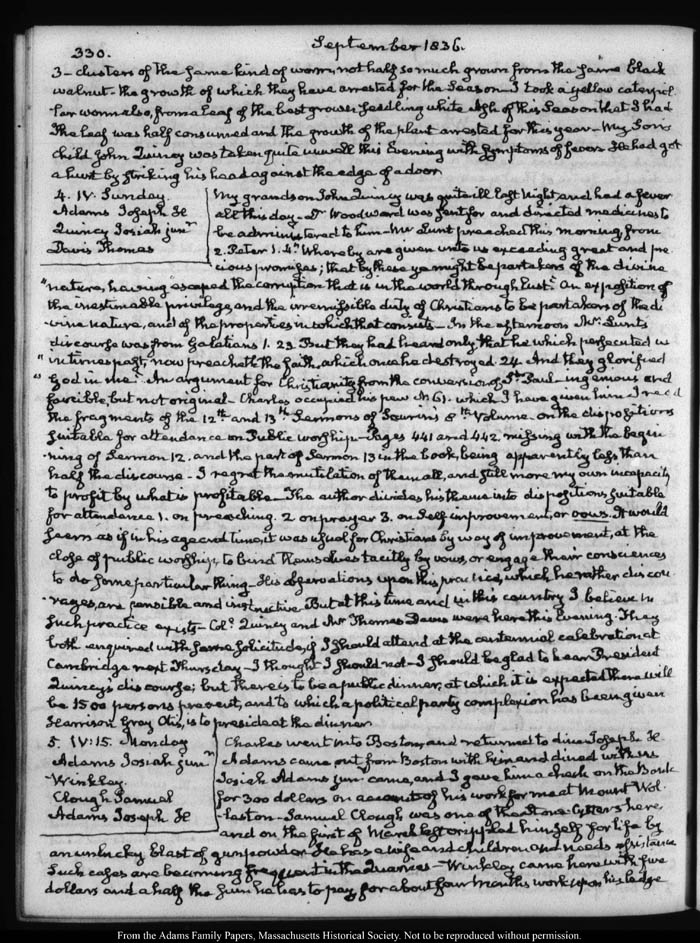 330.
September 1836.
3 - clusters of the same kind of worm, not half so much grown from the same black
walnut - the growth of which they have arrested for the season - I took a yellow caterpil-
lar worm also, from a leaf of the best grower seedling white Ash of this Season that I had
The leaf was half consumed and the growth of the plant arrested for this year - My Son's
child John Quincy was taken quite unwell this Evening with symptoms of fever. He had got
a hurt by striking his head against the edge of a door.
4. IV. Sunday.
Adams Joseph H
Quincy Josiah junr
Davis Thomas
My grandson John Quincy was quite ill last Night, and had a fever
all this day - Dr Woodward was sent for and directed medicines to
be administered to him - Mr Lunt preached this morning from
2. Peter 1. 4. "Whereby are given unto us exceeding great and pre
cious promises; that by these ye might be partakers of the divine
"nature, having escaped the corruption that is in the world through lust." An exposition of
the inestimable privilege, and the irremissible duty of Christians to be partakers of the di
-vine nature, and of the properties in which that consists - In the afternoon Mr Lunt's
discourse was from Galatians 1. 23 But they had heard only that he which persecuted us
"in times past, now preacheth the faith which once he destroyed 24. And they glorified
"God in me". An argument for Christianity from the conversion of St Paul - ingenious and
forcible, but not original - Charles occupied his pew which I have given him I read
the fragments of the 12th and 13th Sermons of Saurin's 8th Volume - on the dispositions
suitable for attendance on Public worship - Pages 441 and 442 missing with the begin
-ning of Sermon 12. and the part of Sermon 13 in the book, being apparently less than
half the discourse - I regret the mutilation of them all, and still more my own incapacity
to profit by what is profitable - The author divides his theme into dispositions suitable
for attendance 1. on preaching. 2 on prayer 3. on Self improvement, or vows. It would
seem as if in his age and time, it was usual for Christians by way of improvement, at the
close of public worship, to bind themselves tacitly by vows, or engage their consciences
to do some particular thing - His observations upon this practice, which he rather discou
-rages, are sensible and instructive. But at this time and in this country I believe no
such practice exists - Col. Quincy and Mr Thomas Davis were here this Evening. They
both enquired with some solicitude, if I should attend at the centennial celebration at
Cambridge next Thursday - I thought I should not - I should be glad to hear President
Quincy's discourse; but there is to be a public dinner, at which it is expected there will
be 1500 persons present, and to which a political party complexion has been given
Harrison Gray Otis, is to preside at the dinner
5. IV:15. Monday
Adams Josiah junr
Winkley.
Clough Samuel
Adams Joseph H
Charles went into Boston, and returned to dine Joseph H
Adams came out from Boston with him and dined with us
Josiah Adams junr came, and I gave him a check on the Bank
for 300 dollars on account of his work for me at Mount Wol
-laston - Samuel Clough was one of the stone-cutters here
and on the first of March last crippled himself for life by
an unlucky blast of gunpowder. He has a wife and children and needs assistance
Such cases are becoming frequent in the Quarries - Winkley came here with five
dollars and a half the sum he has to pay for about four months work upon his ledge
From the Adams Family Papers, Massachusetts Historical Society. Not to be reproduced without permission.